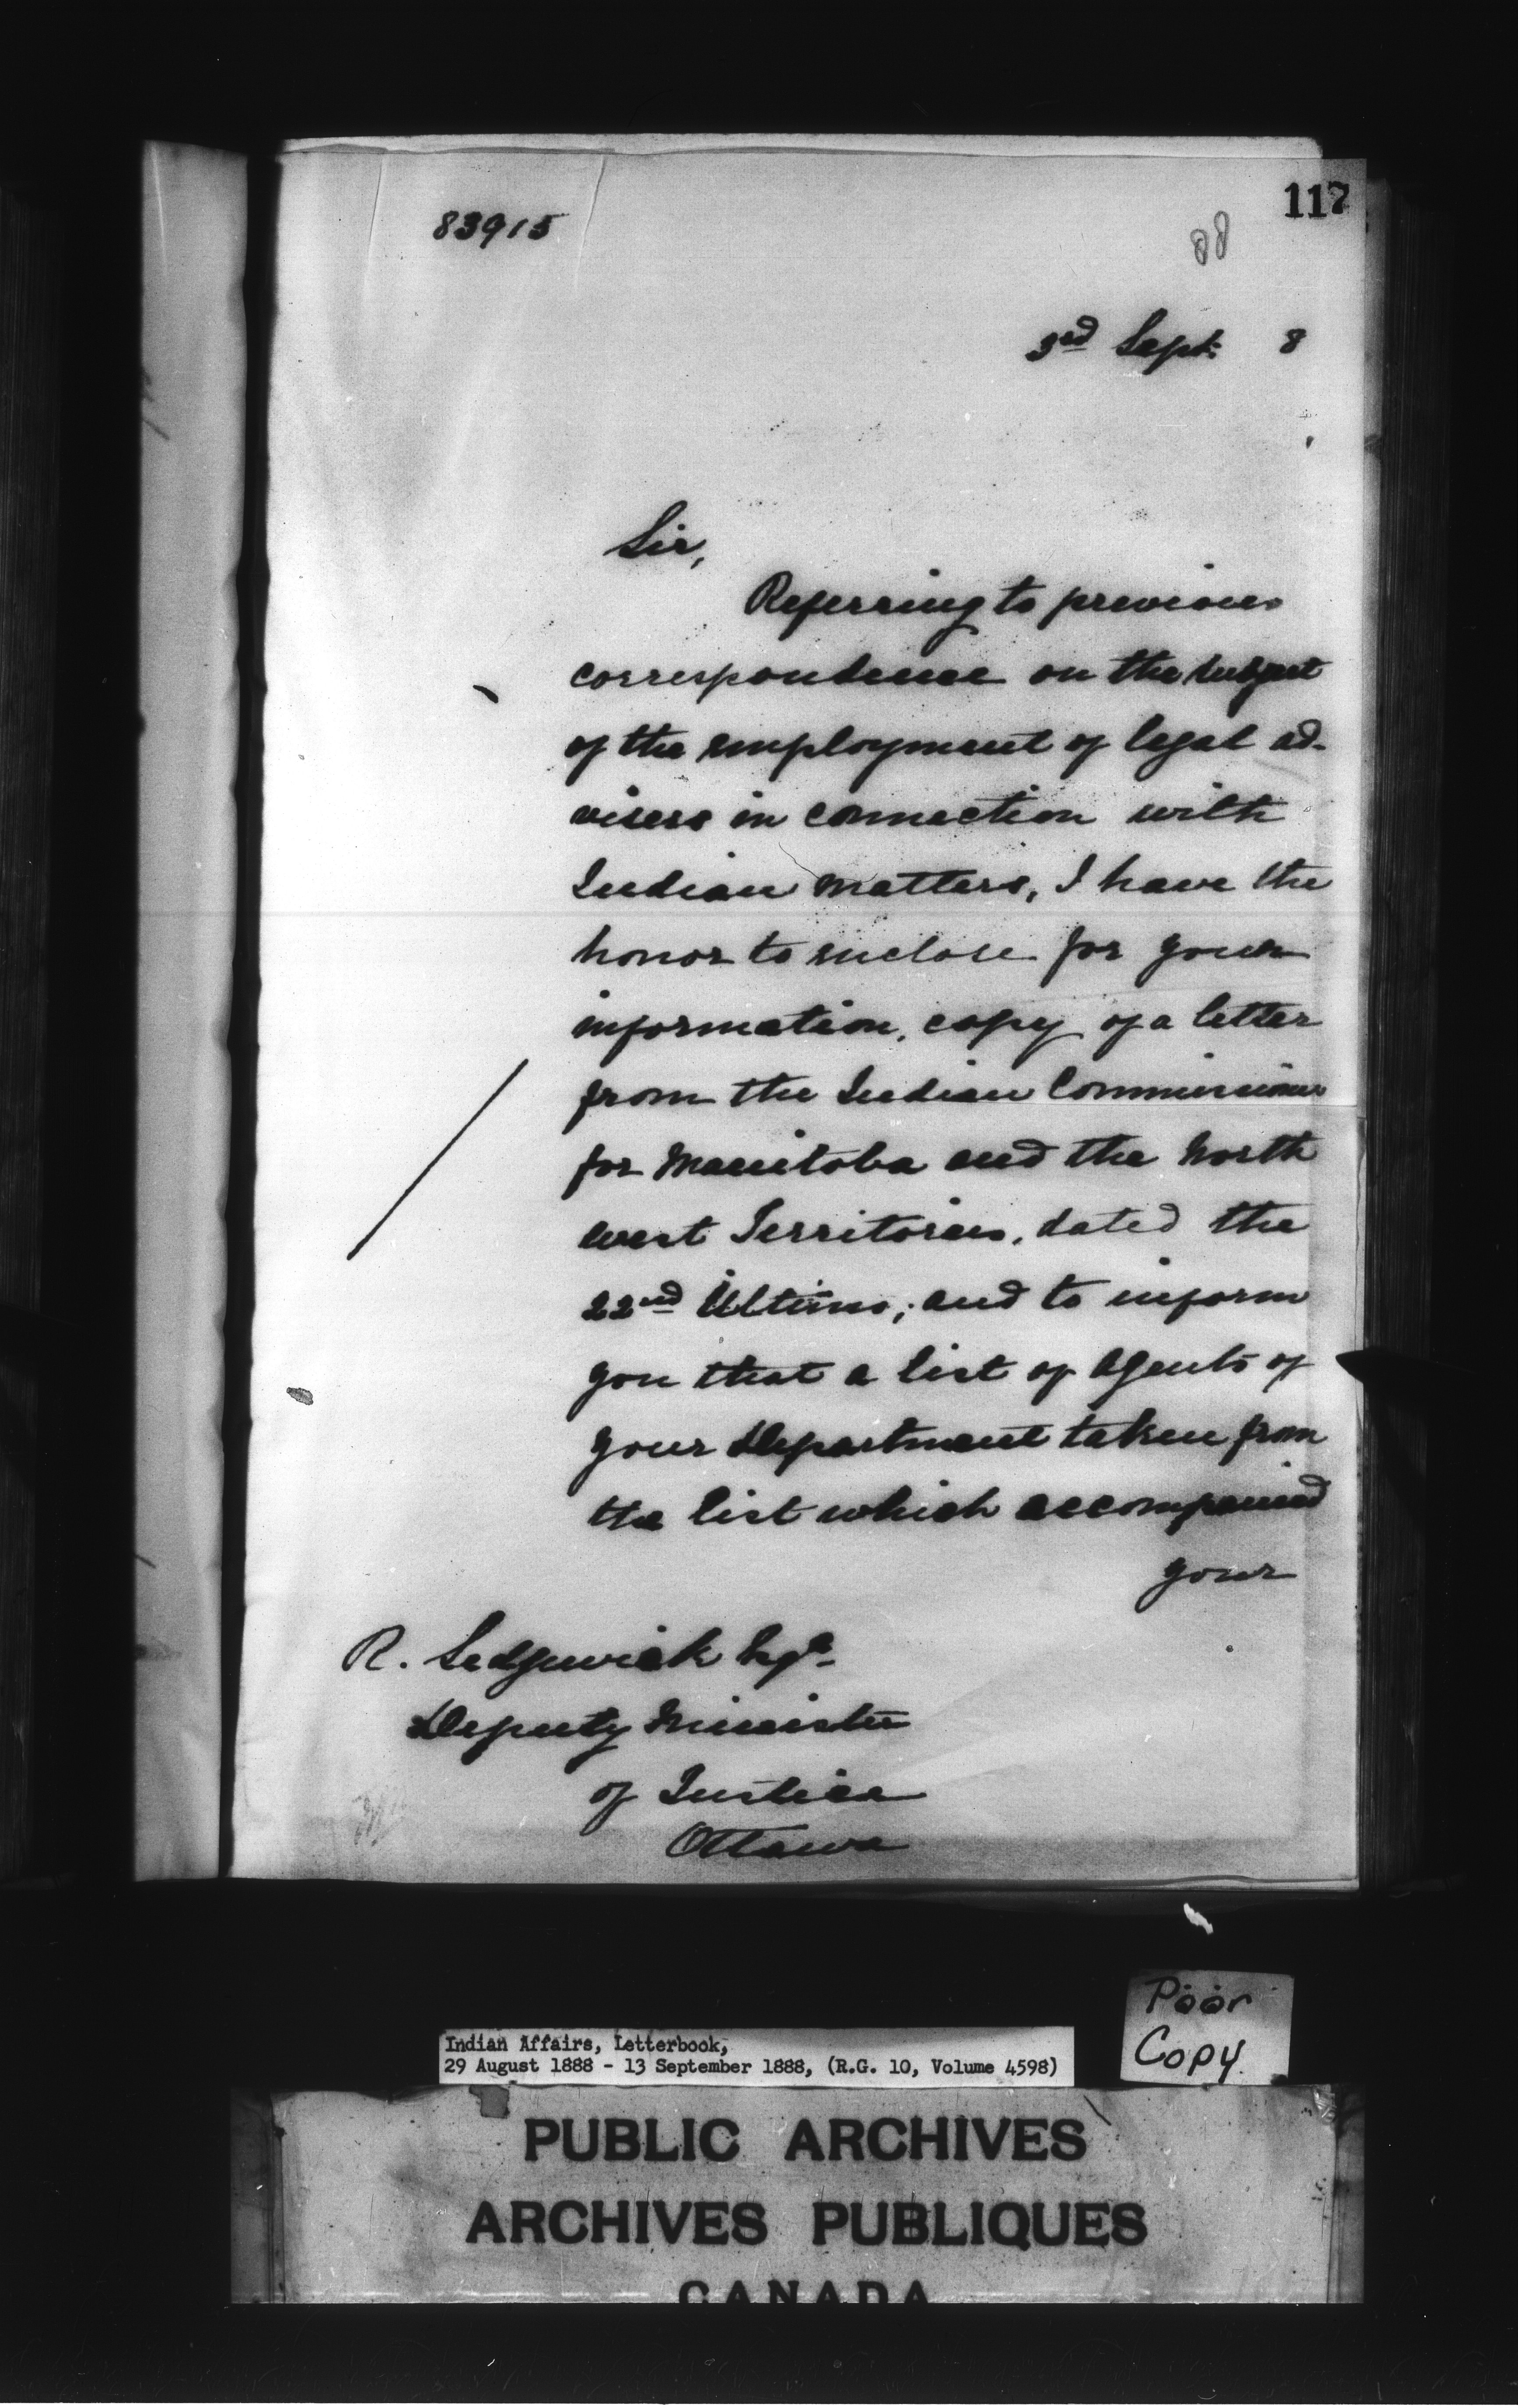 117
83915
88
3rd Sept. 8
Sir,
Referring to previous
correspondence on the subject
of the employment of legal ad-
visers in connection with
Indian matters, I have the
honor to enclose for your
information, copy of a letter
from the Indian Commissioner
for Manitoba and the North
west Territories, dated the
22nd Ultimo; and to inform
you that a list of Agents of
your Department taken from
the list which accompanied
your
R. Sedgewick Esqe.
Deputy Minister
of Justice
Ottawa
Poor
Copy.
Indian Affairs, Letterbook,
29 August 1888 - 13 September 1888, (R.G. 10, Volume 4598)
PUBLIC ARCHIVES
ARCHIVES PUBLIQUES
CANADA